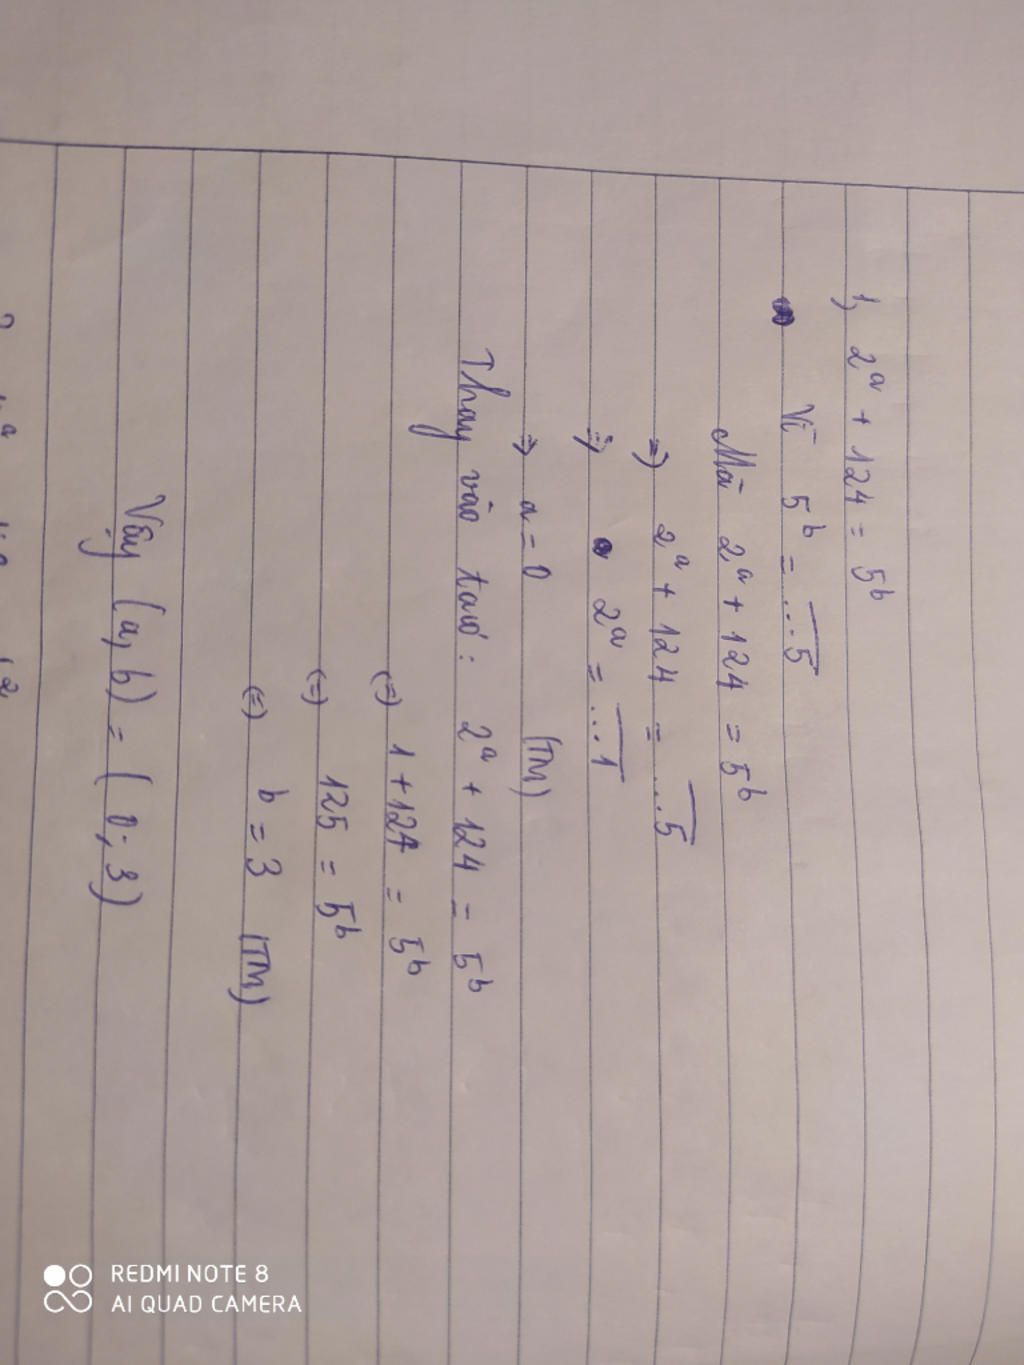 1, 2ᵃ + 124 = 5ᵇ
Vì 5ᵇ = ...5
Mà 2ᵃ + 124 = 5ᵇ
=) 2ᵃ + 124 = ...5
=) 2ᵃ = ...1
=) a = 0 (TM)
Thay vào ta có: 2ᵃ + 124 = 5ᵇ
(=) 1 + 124 = 5ᵇ
(=) 125 = 5ᵇ
(=) b = 3 (TM)
Vậy (a, b) = (0; 3)
REDMI NOTE 8
AI QUAD CAMERA